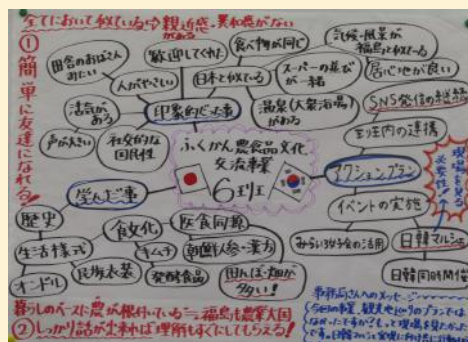 全てにおいて似ている⇨親近感・異和感がない
がある
①簡単に友達になれる!
田舎のおばさんみたい
歓迎してくれた
食べ物が同じ
気候・風景が福島と似ている
人がやさしい
日本と似ている
スーパーの並びが一緒
居心地が良い
活気がある
印象的だった事
温泉(大衆浴場)がある
SNS発信の継続
声が大きい
社交的な国民性
ふくかん農食品文化
交流事業
6班
班内の連携
アクションプラン
現場を見る必要性!
学んだ事
イベントの実施
歴史
食文化
医食同源
みらい女子会の活用
日韓マルシェ
生活様式
キムチ
朝鮮人参・漢方
オンドル
民族衣装
発酵食品
田んぼ・畑が多い!
日韓同時開催
暮らしのベースに農が根付いている=福島も農業大国
②しっかり話が出来れば理解もすぐにしてもらえる!
事務局さんへのメッセージ